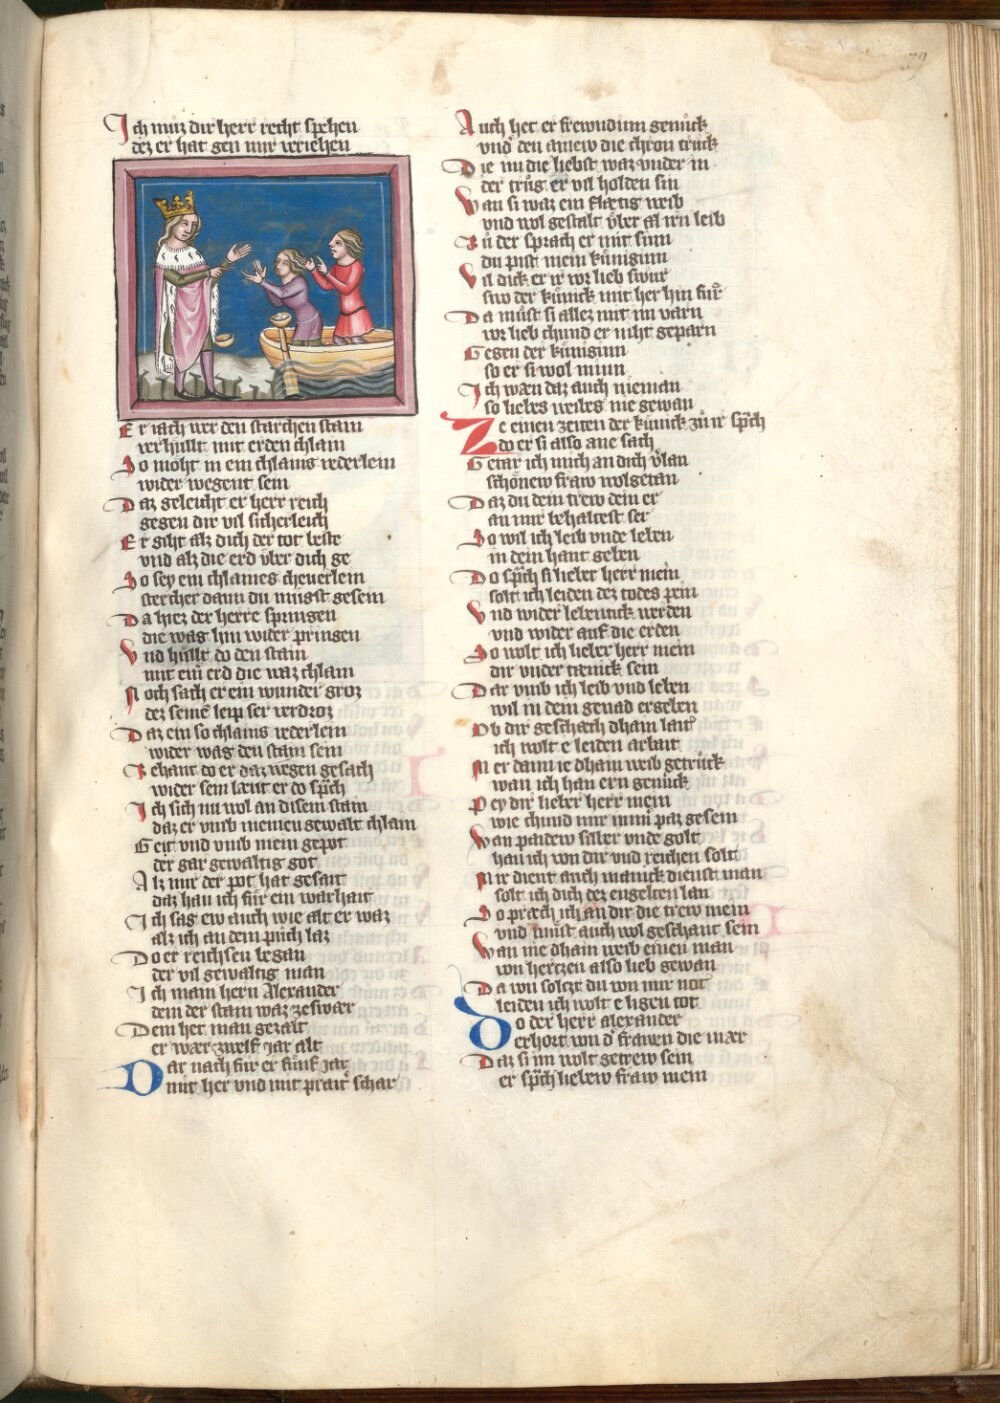 79
Ich muz dir herr recht spehen
dez er hat gen mir veriehen
Er iach wer den starchen stain
verhullt mit erden chlain
So möht in ein chlains vederlein
wider wegent sein
Daz geleicht er herr reich
gegen dir vil sicherleich
Er giht alz dich der tot beste
vnd alz die erd vber dich ge
So sey ein chlaines cheuerlein
stercher dann du mugst gesein
Da hiez der herre springen
die wag hin wider pringen
Vnd hullt do den stain
mit ein erd die waz chlain
Noch sach er ein wunder groz
dez seinē leip ser verdroz
Daz ein so chlains vederlein
wider wag den stain sein
Zehant do er daz wegen gesach
wider sein læut er do sp̄ch
Ich sich nu wol an disem stain
daz er vmb meinen gewalt chlain
Geit vnd vmb mein gepot
der gar gewaltig got
Alz mir der pot hat gesait
daz han ich für ein warhait
Ich sag ew auch wie alt er waz
alz ich an dem puch laz
Do er reichsen began
der vil gewaltig man
Ich main hern Alexander
dem der stain waz zeswær
Dem het man gezalt
er wær zwelf jar alt
Dar nach für er fünf jar
mit her vnd mit praitˀ schar
Auch het er frewndinn genück
vnd den ainew die chron trück
Die nu die liebst waz vnder in
der trüg er vil holden sin
Wan si waz ein flætig weib
vnd wol gestalt vber al irn leib
Zů der sprach er mit sinn
du pist mein küniginn
Vil dick er ir vor lieb swur
swo der künick mit her hin für
Da müst si allez mit im varn
vor lieb chund er niht geparn
Gegen der künginn
so er si wol minn
Ich wæn daz auch nieman
so liebes weibes nie gewan
Ze einen zeiten der künick zů ir sp̄ch
do er si also ane sach
Getar ich mich an dich v̄lan
schönew fraw wolgetan
Daz du dein trew dein er
an mir behaltest ser
So wil ich leib vnde leben
in dein hant geben
Do sp̄ch si lieber herr mein
solt ich leiden dez todes pein
Vnd wider lebentick werden
vnd wider auf die erden
So wolt ich lieber herr mein
dir vnder tænick sein
Dar vmb ich leib vnd leben
wil in dein genad ergeben
Ob dir geschæch dhain laitˀ
ich wolt e leiden arbait
Mer dann ie dhain weib getrück
wan ich han ern genück
Pey dir lieber herr mein
wie chund mir immˀ paz gesein
Wan paidew silber vnde golt
han ich von dir vnd reichen solt
Mir dient auch manick dienst man
solt ich dich dez engelten lan
So præch ich an dir die trew mein
vnd müst auch wol geschant sein
Wan nie dhain weib einen man
von hertzen also lieb gewan
Da von solczt du von mir not
leiden ich wolt e ligen tot
Do der herr alexander
erhort von dˀ frawen die mær
Daz si im wolt getrew sein
er sp̄ch liebew fraw mein